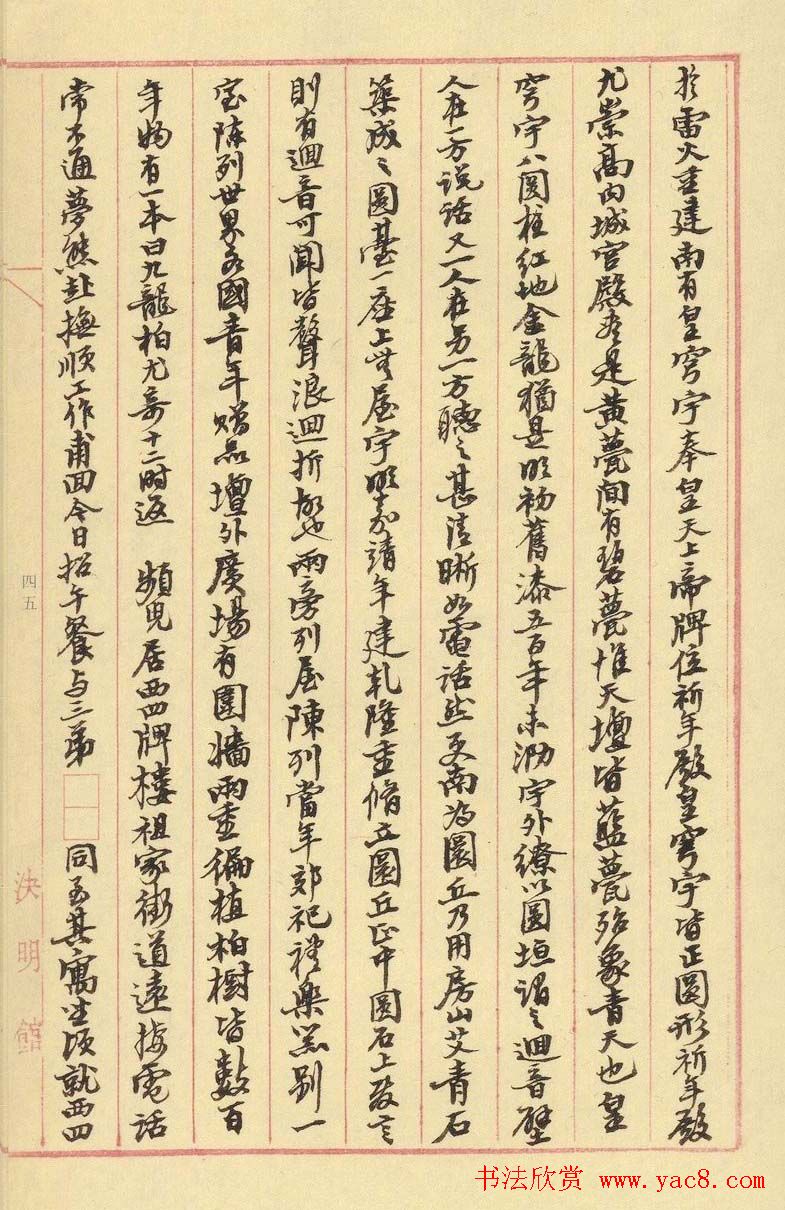 於雷火重建南有皇穹宇奉皇天上帝牌位祈年殿皇穹宇皆正圓形祈年殿
尤崇高内城宫殿者是黄甍间有碧甍惟天壇皆藍甍殆象青天也皇
穹宇八圆柱红地金龍猶是明初舊漆五百年未泐宇外繚以圆垣谓之迴音壁
人在一方说话又一人在另一方聽之甚清晰如電话然更南為圜丘乃用房山艾青石
築成之圓臺一座上無屋宇明嘉靖年建乾隆重脩立圜丘正中圆石上發言
則有迴音可聞皆聲浪迴折故也兩旁列屋陳列當年郊祀禮樂器别一
室陈列世界各國青年赠品壇外廣場有圍牆兩重徧植柏樹皆數百
年物有一本曰九龍柏尤奇十二时返 频兒居西四牌樓祖家街道遠接電話
常不通夢熊赴撫順工作甫回今日招午餐与三弟 同至其寓坐顷就西四
四五
決明館
书法欣赏 www.yac8.com